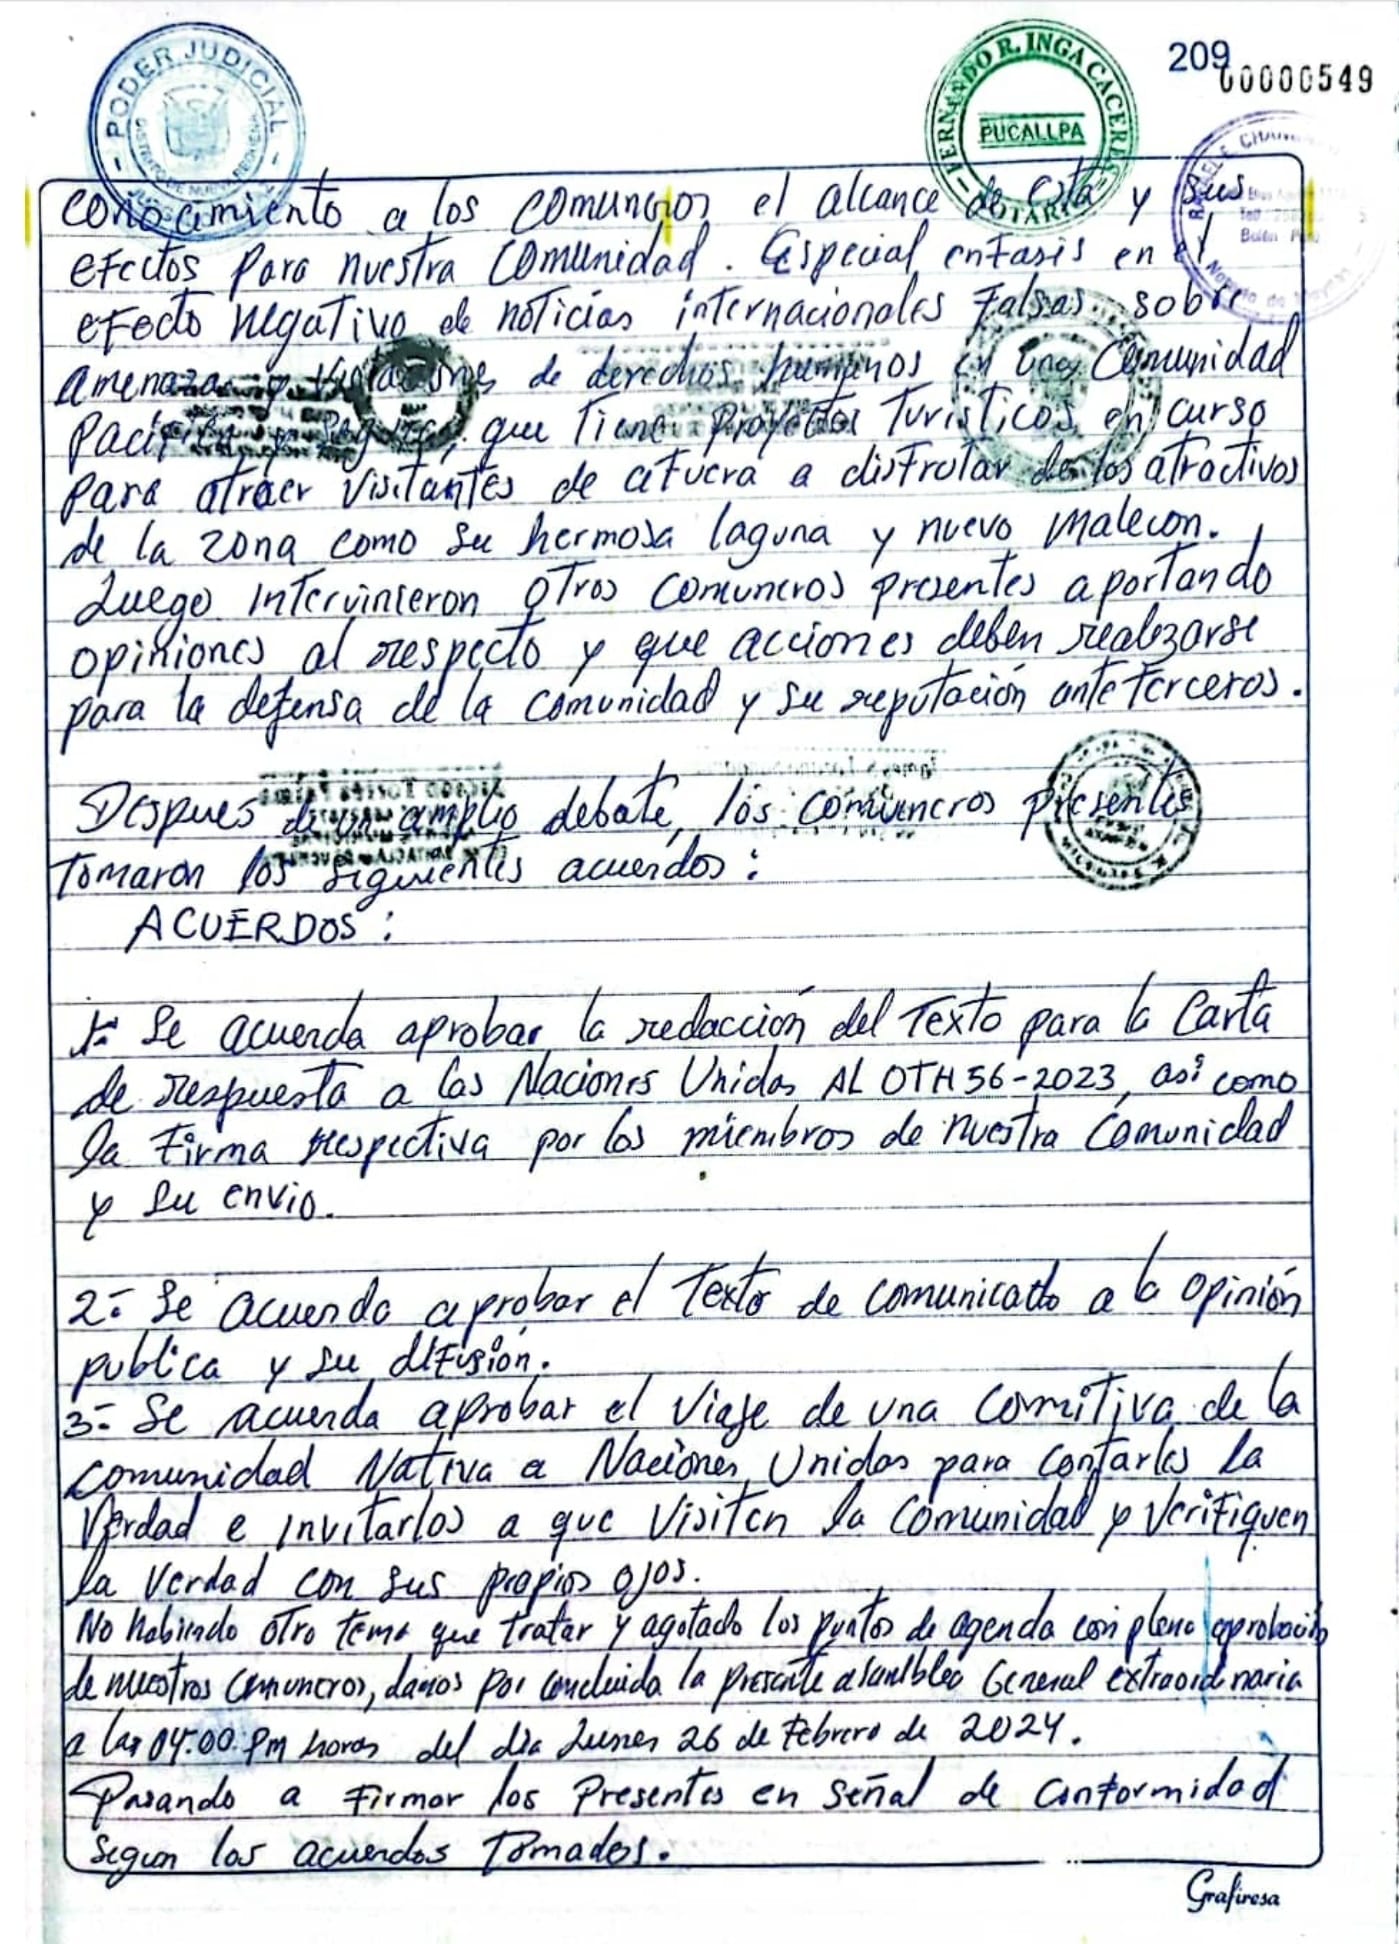 PODER JUDICIAL
FERNANDO R. INGA CACERES
PUCALLPA
NOTARIO
209
00000549
conocimiento a los comuneros el alcance de esta y sus
efectos para nuestra comunidad. Especial enfasis en el
efecto negativo de noticias internacionales falsas sobre
amenazas y violaciones de derechos humanos en una Comunidad
pacífica y segura, que tiene proyectos Turisticos en curso
para atraer visitantes de afuera a disfrutar de los atractivos
de la zona como su hermosa laguna y nuevo malecon.
Luego intervinieron otros comuneros presentes aportando
opiniones al respecto y que acciones deben realizarse
para la defensa de la comunidad y su reputación ante terceros.
Despues de un amplio debate, los comuneros presentes
Tomaron los siguientes acuerdos:
ACUERDOS:
1.- Se acuerda aprobar la redacción del Texto para la Carta
de respuesta a las Naciones Unidas AL OTH 56-2023, así como
la firma respectiva por los miembros de nuestra Comunidad
y su envio.
2.- Se acuerda aprobar el Texto de comunicado a la opinión
publica y su difusión.
3.- Se acuerda aprobar el viaje de una Comitiva de la
Comunidad Nativa a Naciones Unidas para contarles la
Verdad e invitarlos a que visiten la Comunidad y verifiquen
la verdad con sus propios ojos.
No habiendo otro tema que tratar y agotado los puntos de agenda con plena aprobación
de nuestros comuneros, damos por concluida la presente asamblea General extraordinaria
a las 04:00 pm horas del día Lunes 26 de Febrero de 2024.
Pasando a firmar los Presentes en señal de Conformidad
segun los acuerdos Tomados.
Grafiresa